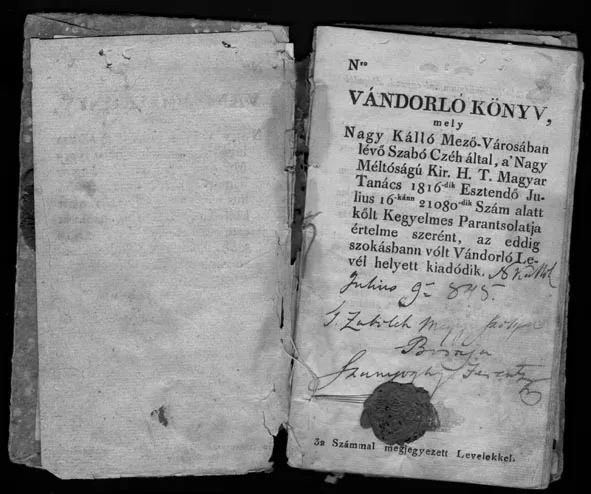 Nro
VÁNDORLÓ KÖNYV,
mely
Nagy Kálló Mező-Városában
lévő Szabó Czéh által, a' Nagy
Méltóságú Kir. H. T. Magyar
Tanács 1816-dik Esztendő Ju-
lius 16-kánn 21080-dik Szám alatt
kőlt Kegyelmes Parantsolatja
értelme szerént, az eddig
szokásbann vólt Vándorló Le-
vél helyett kiadódik.
Julius 9n 845.
32 Számmal megjegyezett Levelekkel.